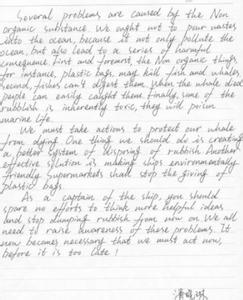 Several problems are caused by the Non
organic substance. We ought not to pour wastes
into the ocean, because it not only pollute the
ocean, but also lead to a series of harmful
consequence. First and foremost, the Non organic things,
for instance, plastic bags, may kill fish and whales.
Second, fishes can't digest them. When the whale died
people can easily caught them. Finally, some of the
rubblish is inherently toxic, they will poison
marine life.
We must take actions to protect our whale
from dying. One thing we should do is creating
a better system of disposing of rubbish. Another
effective solution is making ships environmentally
friendly. Supermarkets shall stop the giving of
plastic bags.
As a captain of the ship, you should
spare no efforts to think more helpful ideas
and stop dumping rubbish from now on. We all
need to raise awareness of these problems. It
now becomes necessary that we must act now,
before it is too late!